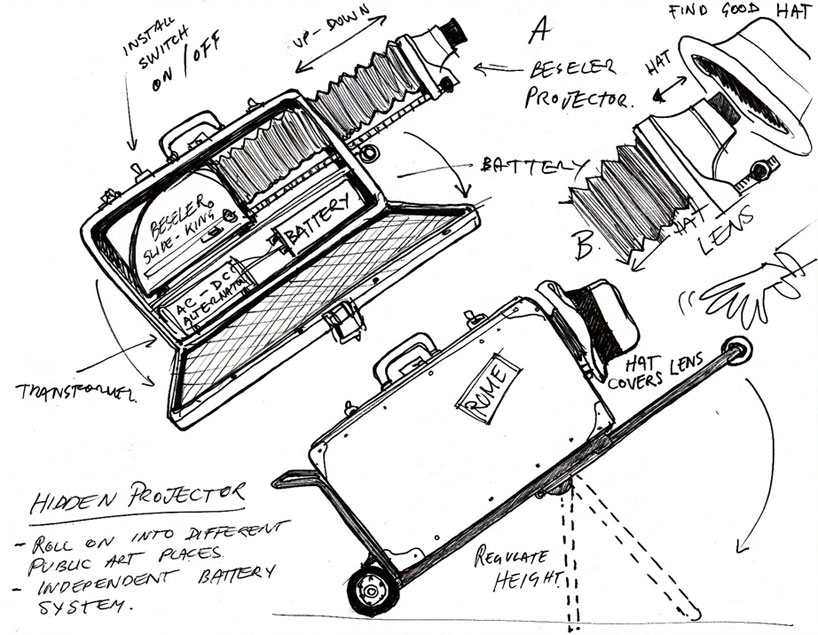 INSTALL
SWITCH
ON / OFF
UP-DOWN
A
BESELER
PROJECTOR.
FIND GOOD HAT
HAT
BATTERY
BESELER
SLIDE-KING
BATTERY
AC-DC
ALTERNATOR
B.
HAT
LENS
TRANSFORMER
HAT
COVERS LENS
ROME
HIDDEN PROJECTOR
- ROLL ON INTO DIFFERENT
PUBLIC ART PLACES.
- INDEPENDENT BATTERY
SYSTEM.
REGULATE
HEIGHT.